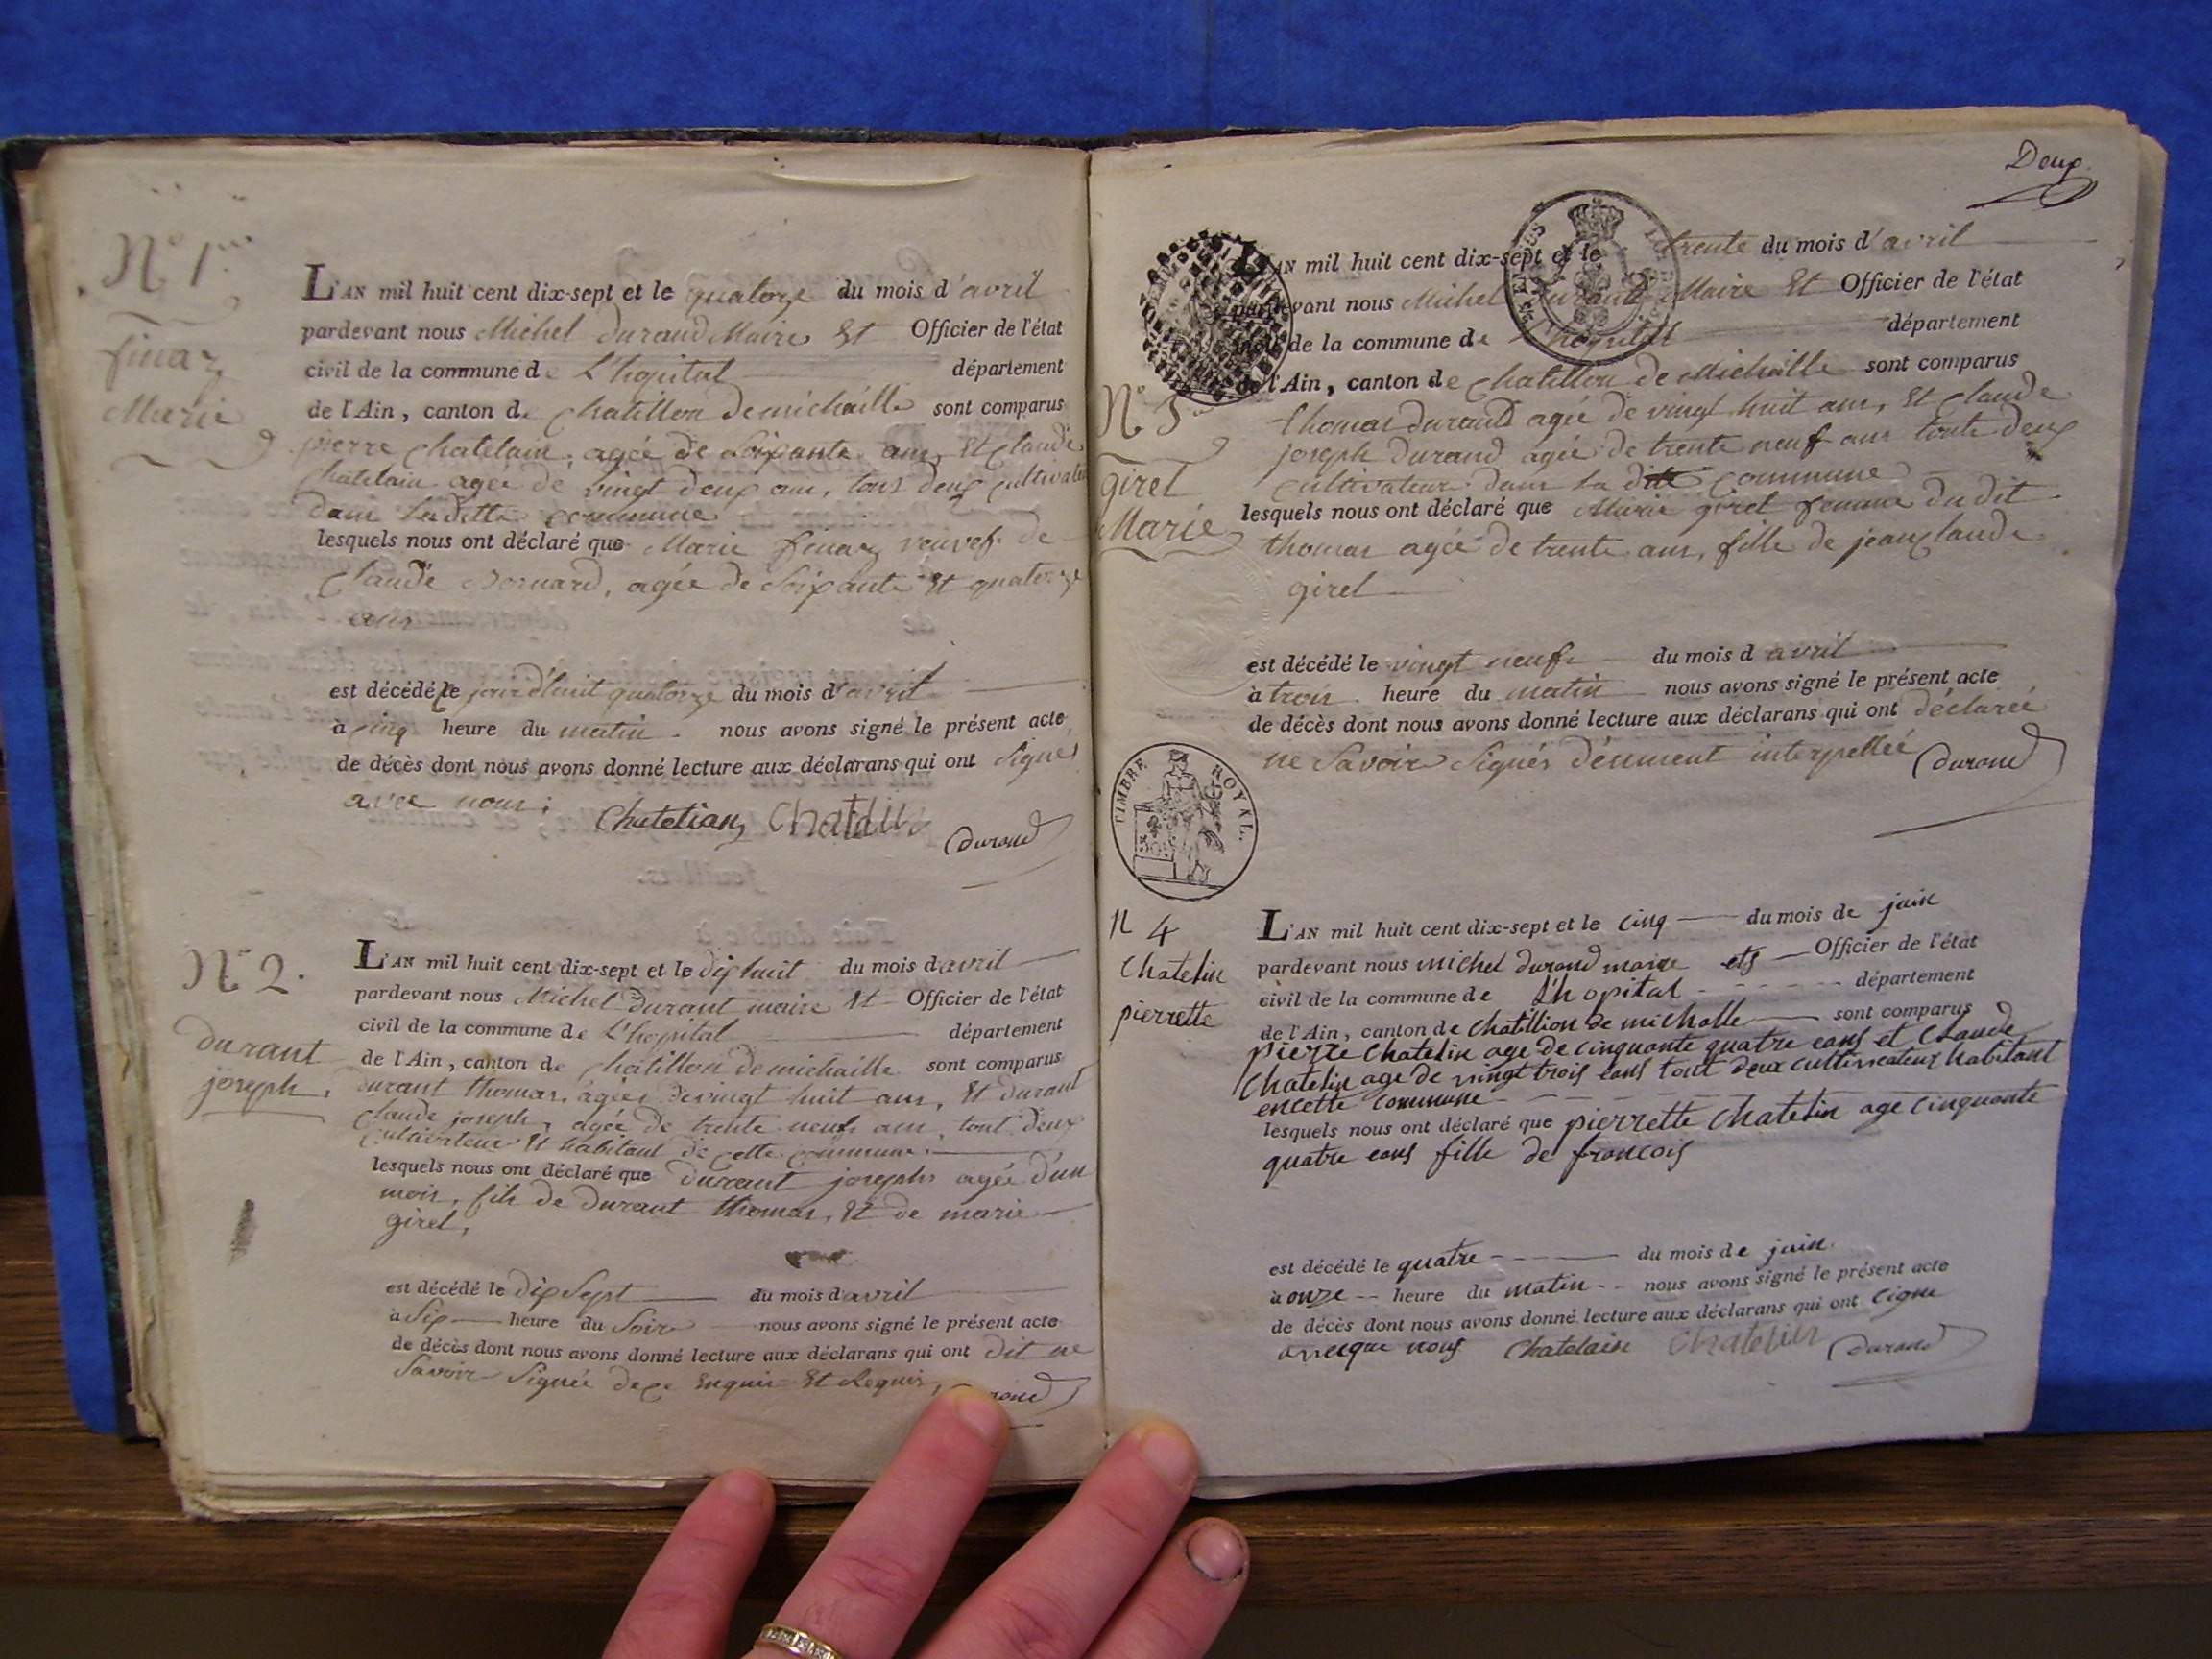 N° 1er
finaz
Marie
L'AN mil huit cent dix-sept et le quatorze du mois d'avril
pardevant nous Michel durand Maire Et Officier de l'état
civil de la commune de L'hopital département
de l'Ain, canton de chatillon de michaille sont comparus
pierre chatelain, agée de Soixante ans, Et claude
chatelain agée de vingt deux ans, tous deux cultivateur
dans laditte commune
lesquels nous ont déclaré que Marie finaz veuvef de
claude Bornard, agée de Soixante Et quatorze
ans
est décédé le jourd'huit quatorze du mois d'avril
à cinq heure du matin. nous avons signé le présent acte
de décès dont nous avons donné lecture aux déclarans qui ont Signés
avec nous;
Chatelian Chatelin
durand
N° 2.
durant
joseph.
L'AN mil huit cent dix-sept et le dixhuit du mois d'avril
pardevant nous Michel durant maire Et Officier de l'état
civil de la commune de L'hopital département
de l'Ain, canton de chatillon de michaille sont comparus
durant thomas, agées de vingt huit ans, Et durant
claude joseph, agée de trente neufs ans, tout deux
cultivateur Et habitant de cette commune.
lesquels nous ont déclaré que durant joseph agée d'un
mois, fils de durant thomas, Et de marie
girel,
est décédé le dix Sept du mois d'avril
à Six heure du Soir nous avons signé le présent acte
de décès dont nous avons donné lecture aux déclarans qui ont dit ne
Savoir Signée de ce Enquis Et Requis,
Deux
L'AN mil huit cent dix-sept et le trente du mois d'avril
pardevant nous Michel durand Maire Et Officier de l'état
civil de la commune de L'hopital département
de l'Ain, canton de chatillon de Michaille sont comparus
N° 3
girel
Marie
thomas durand agée de vingt huit ans, Et claude
joseph durand agée de trente neuf ans toute deux
cultivateur dans la dite commune
lesquels nous ont déclaré que Marie girel femme du dit
thomas agée de trente ans, fille de jean claude
girel
est décédé le vingt neuf du mois d avril
à trois heure du matin nous avons signé le présent acte
de décès dont nous avons donné lecture aux déclarans qui ont déclarée
ne Savoir Signés dëument interpellée
durand
TIMBRE ROYAL.
n 4
Chatelin
pierrette
L'AN mil huit cent dix-sept et le cinq du mois de juin
pardevant nous michel durand maire ets Officier de l'état
civil de la commune de l'hopital département
de l'Ain, canton de chatillion de micholle sont comparus
pierre Chatelin age de cinquante quatre eans et Claude
Chatelin age de vingt trois eans tout deux cultivateur habitant
encette commune
lesquels nous ont déclaré que pierrette Chatelin age cinquante
quatre eans fille de francois
est décédé le quatre du mois de juin
à onze heure du matin nous avons signé le présent acte
de décès dont nous avons donné lecture aux déclarans qui ont Cigne
avecque nous Chatelain Chatelin durand